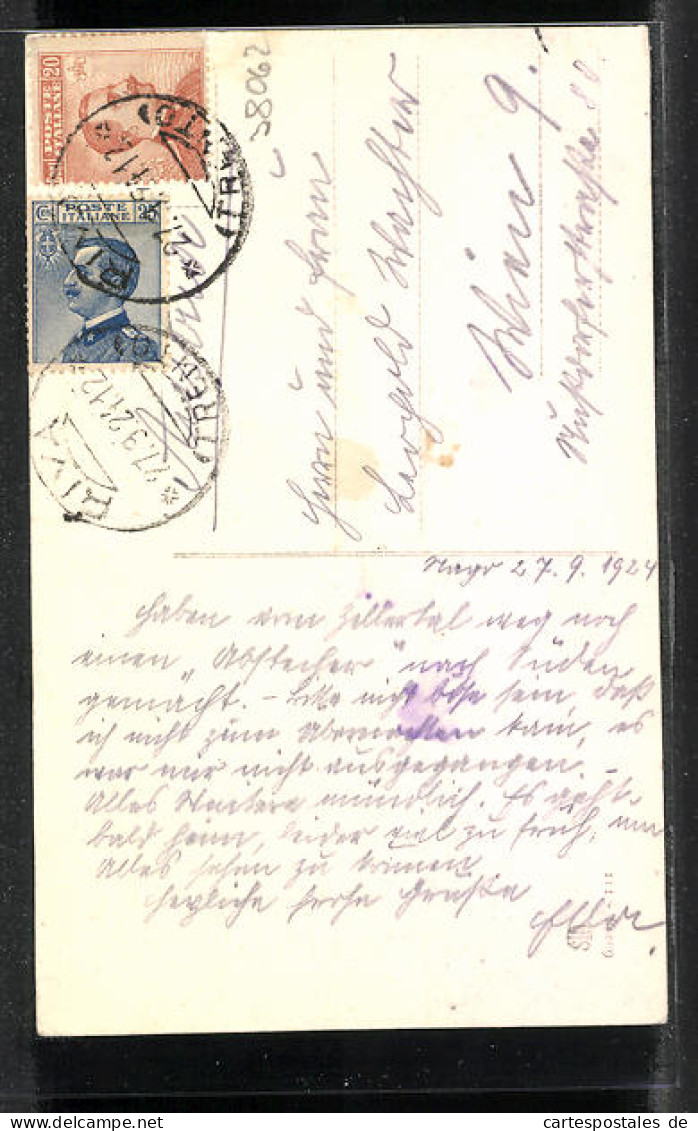 POSTE ITALIANE
20
C POSTE 25
ITALIANE
RIVA
(TRENTO)
58062
Herrn und Frau
Leopold
Wien 9.
Nußdorferstrasse 80
Nago 27.9.1924
Haben vom Zillertal weg noch
einen „Abstecher“ nach Süden
gemacht. – Bitte nicht böse sein, daß
ich nicht zum Übernachten kam, es
war mir nicht ausgegangen. –
Alles Weitere mündlich. Es geht
bald heim, leider viel zu früh, um
Alles sehen zu können
herzliche frohe Grüße
cpa-33095
cartespostales de